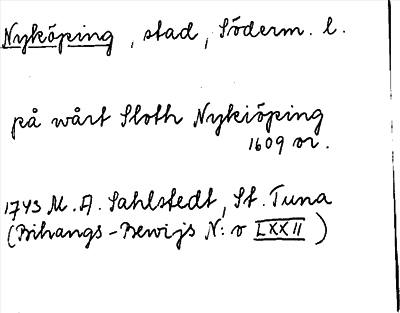 Nyköping, stad, Söderm. l.
på wårt Sloth Nykiöping
1609 or.
1743 M. A. Sahlstedt, St. Tuna
(Bihangs-Bewijs N:o LXXII)